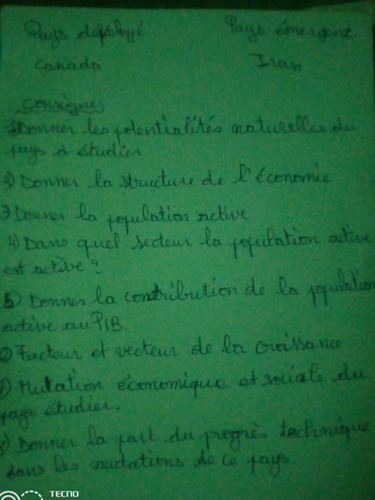 Pays développé Pays émergent
Canada Iran
Consignes
1) Donner les potentialités naturelles du
pays à étudier
2) Donner la structure de l'économie
3 Donner la population active
4) Dans quel secteur la population active
est active ?
5) Donner la contribution de la population
active au PIB
6) Facteur et vecteur de la croissance
7) Mutation économique et sociale du
pays étudier.
8) Donner la part du progrès technique
dans les mutations de ce pays.
TECNO